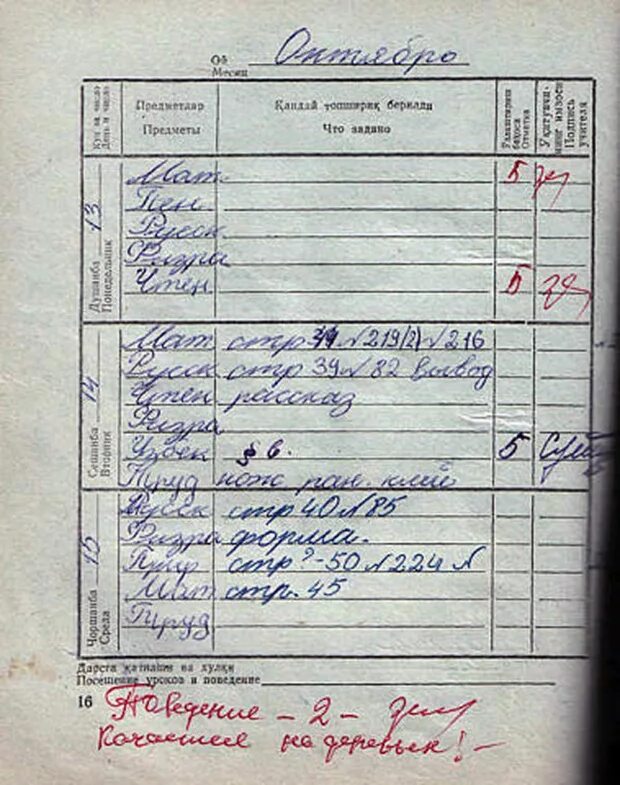 Ой Октябрь
Месяц
Кун ва число День и число
Предметлар Предметы
Қандай топшириқ берилди Что задано
Ўқитувчининг имзоси Подпись учителя
Душанба Понедельник 13
Мат 5
Пен
Русск
Физра
Чтен 5
Сешанба Вторник 14
Мат стр №219(2) №216
Русск стр 39 №82 Вывод
Чтен рассказ
Физра
Узбек § 6. 5
Труд нож ран. клей
Чоршанба Среда 15
Русск стр 40 №85
Физра форма.
стр -50 №224 №
Мат стр. 45
Труд
Дарсга қатнашиш ва хулқи
Посещение уроков и поведение
16 Поведение - 2 -
Качаешся на деревьях! -